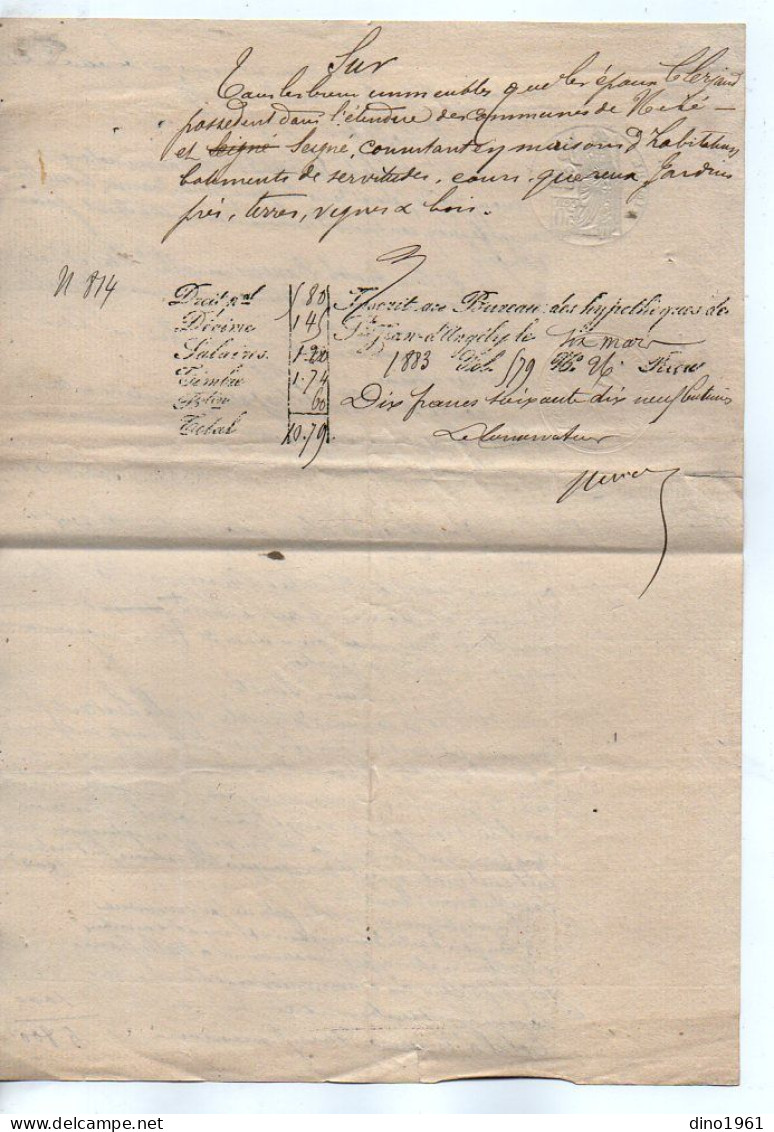 Sur
Tous les biens immeubles que les époux Clerjaud
possedent dans l'étendue des communes de Neré
et Seigné Seigné, consistant en maisons d'habitation,
batiments de servitudes, cours, quereux Jardins
prés, terres, vignes & bois.
N 814
Droit nal 5 80
Décime 1.45
Salaires 1.20
Timbre 1.74
60
Total 10.79
Inscrit au Bureau des hypothèques de
St Jean d'Angély le six mars
1883 Vol. 579 No. Recu
Dix francs soixante dix neuf centimes
Le Conservateur
dino1961